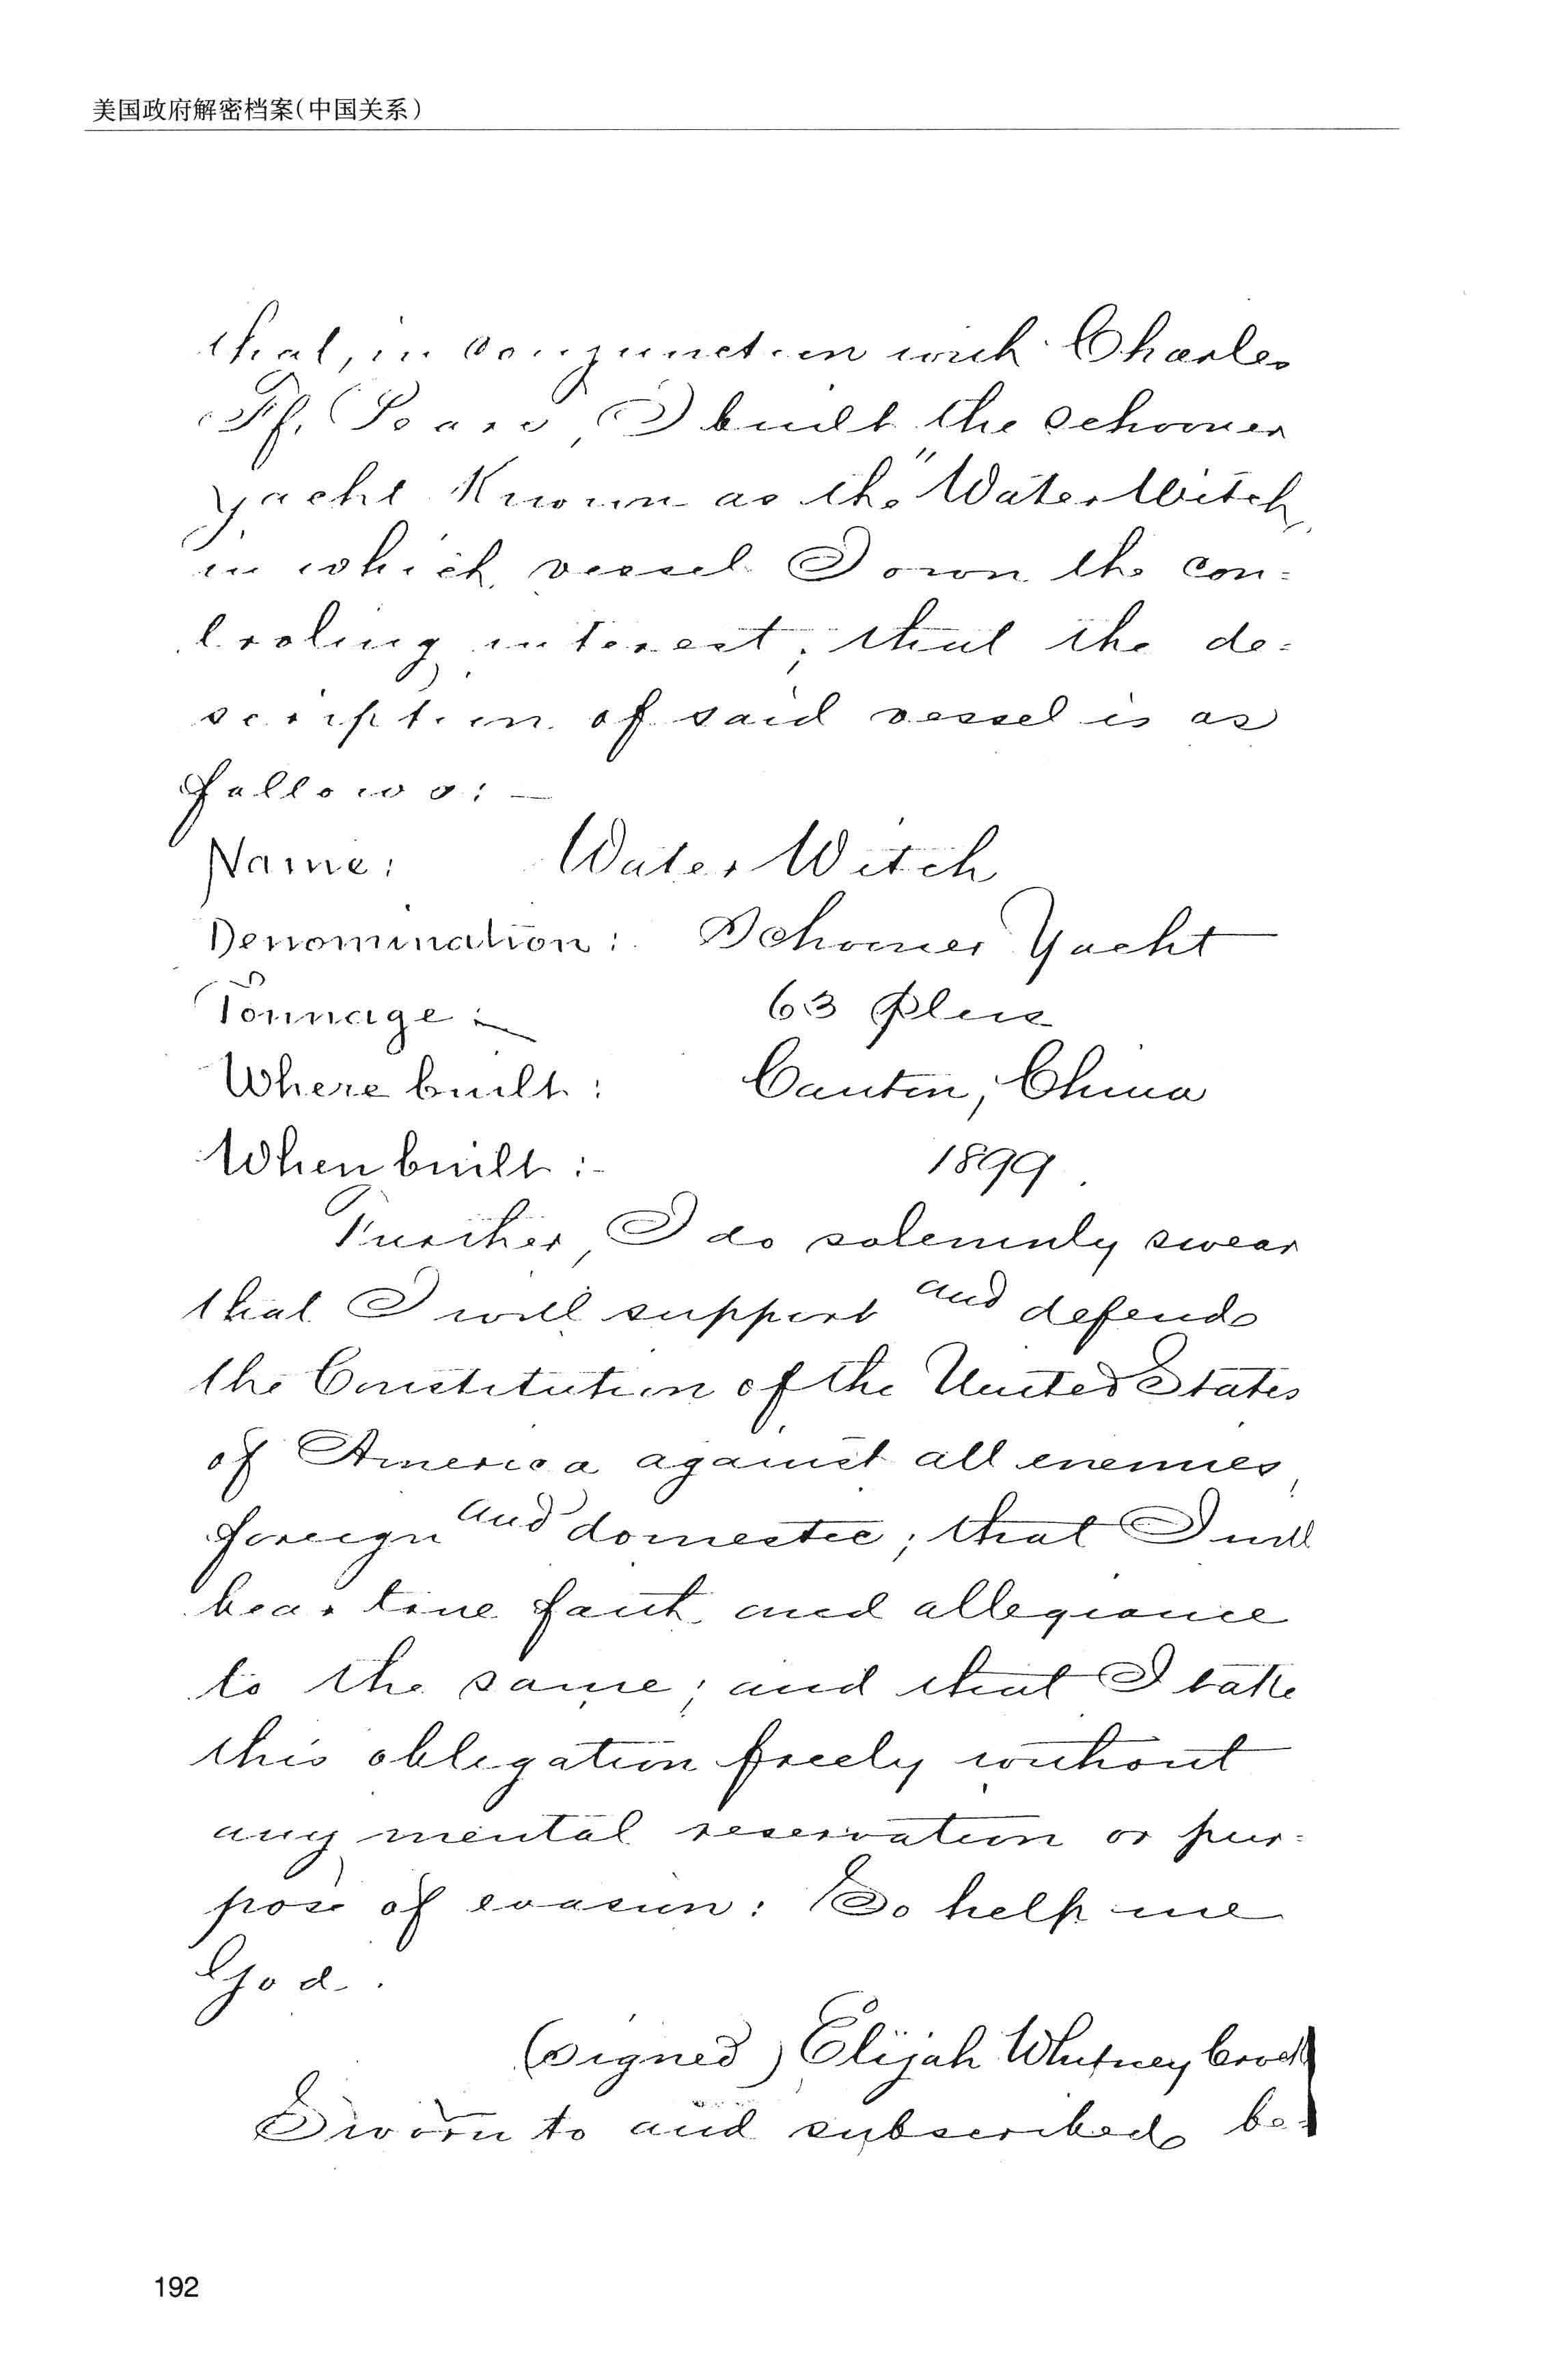 美国政府解密档案(中国关系)
that, in conjunction with Charles
I built the schooner
yacht Known as the "Water Witch
in which vessel I own the con=
troling interest; that the de=
scription of said vessel is as
follows:—
Name: Water Witch
Denomination: Schooner Yacht
Tonnage: 63 Plus
Where built: Canton, China
When built:- 1899.
Further, I do solemnly swear
that I will support and defend
the Constitution of the United States
of America against all enemies,
foreign and domestic; that I will
bear true faith and allegiance
to the same; and that I take
this obligation freely without
any mental reservation or pur=
pose of evasion: So help me
God.
(signed) Elijah Whitney
Sworn to and subscribed be=
192